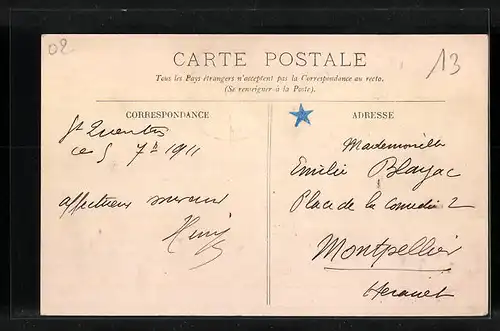 02
13
CARTE POSTALE
Tous les Pays étrangers n'acceptent pas la Correspondance au recto.
(Se renseigner à la Poste).
CORRESPONDANCE
St Quentin
ce 5 7b 1911
affectueux souvenir
ADRESSE
Mademoiselle
Emilie Blayac
Place de la comédie 2
Montpellier
Herault